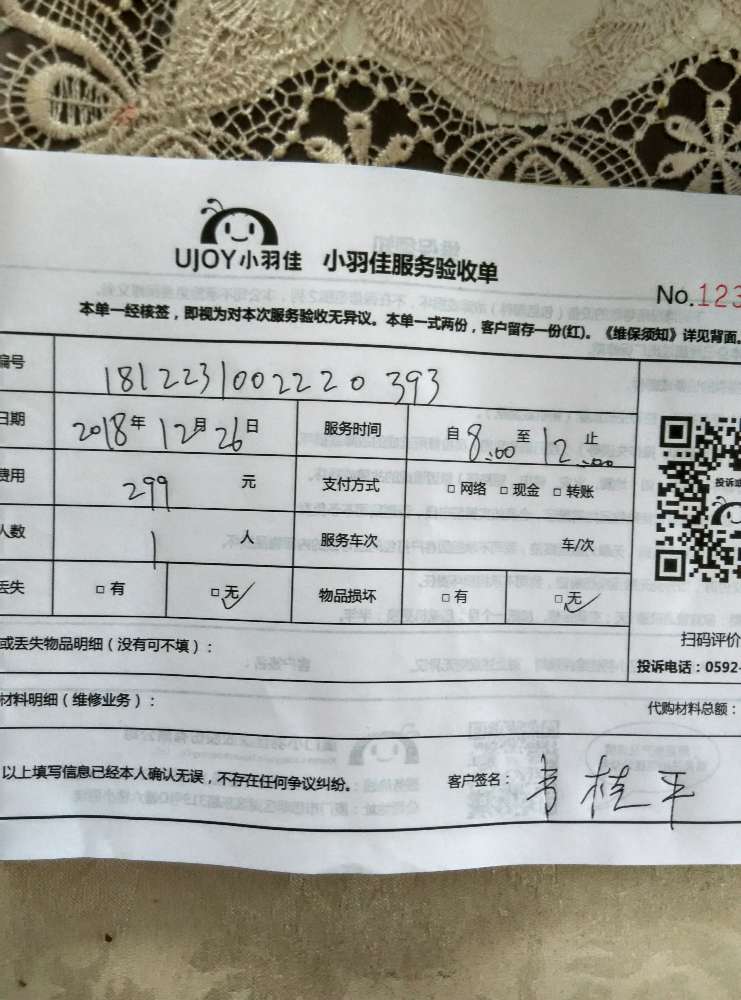 UJOY小羽佳 小羽佳服务验收单
No.123
本单一经核签，即视为对本次服务验收无异议。本单一式两份，客户留存一份(红)。《维保须知》详见背面。
编号 1812231002220393
日期 2018年12月26日 服务时间 自8:00至12:00止
费用 299元 支付方式 □网络 □现金 □转账
人数 1人 服务车次 车/次
丢失 □有 □无✓ 物品损坏 □有 □无✓
投诉或
扫码评价
投诉电话：0592-
或丢失物品明细（没有可不填）：
材料明细（维修业务）： 代购材料总额：
以上填写信息已经本人确认无误，不存在任何争议纠纷。 客户签名：韦桂平